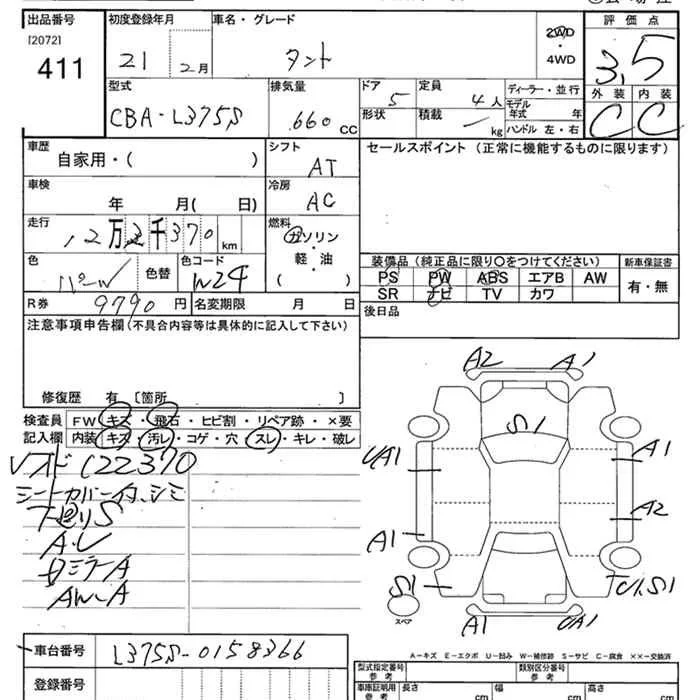 出品番号 初度登録年月 車名・グレード 評価点
[2072]
411 21 2月 タント 2WD・4WD 3.5
外装 内装
C C
型式 排気量 ドア 定員 ディーラー・並行
CBA-L375S 660CC 5 4人 モデル年式 年
形状 積載 kg ハンドル 左・右
車歴 シフト セールスポイント (正常に機能するものに限ります)
自家用・( ) AT
車検 冷房
年 月( 日) AC
走行 燃料
12万2千370km ガソリン・軽・油( )
色 色替 色コード 装備品 (純正品に限り○をつけてください) 新車保証書
パール W24 PS PW ABS エアB AW 有・無
SR ナビ TV カワ
R券 9790円 名変期限 月 日 後日品
注意事項申告欄 (不具合内容等は具体的に記入して下さい)
修復歴 有 [箇所 ]
検査員 FW キズ・飛石・ヒビ割・リペア跡・×要
記入欄 内装 キズ・汚レ・コゲ・穴・スレ・キレ・破レ
シートカバー付、シミ
A2 A1
S1
UA1 A1
A2
A1
S1
A1 UA1
スペア
A-キズ E-エクボ U-凹み W-補修跡 S-サビ C-腐食 ××-交換済
車台番号 L375S-0158366
登録番号
型式指定番号 参考 類別区分番号 参考
車庫証明用 参考 長さ cm 幅 cm 高さ cm